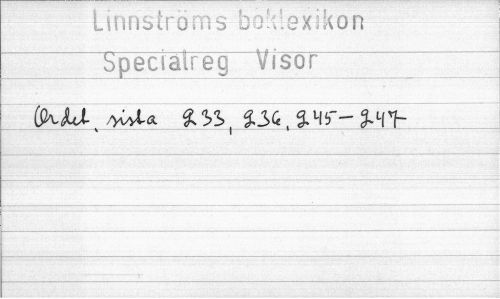 Linnströms boklexikon
Specialreg Visor
Ordet, sista 233, 236, 245-247